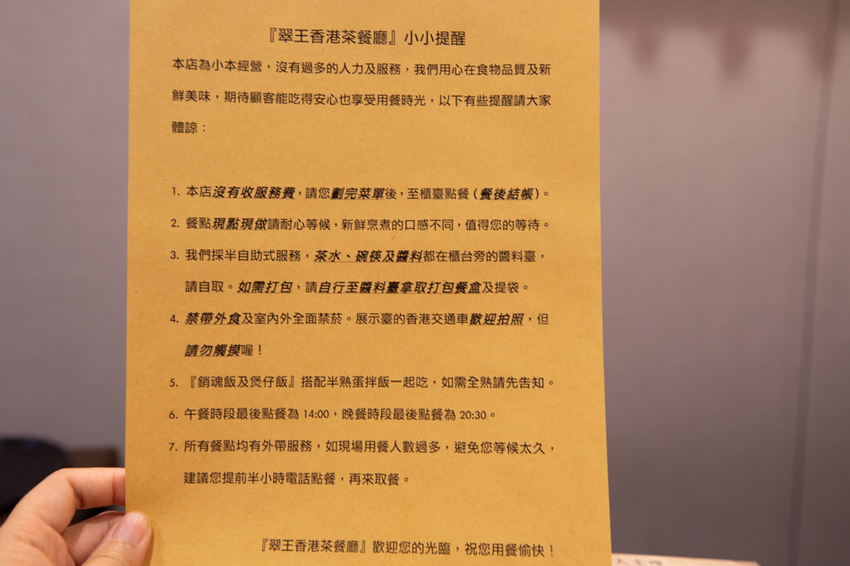 『翠王香港茶餐廳』小小提醒
本店為小本經營，沒有過多的人力及服務，我們用心在食物品質及新
鮮美味，期待顧客能吃得安心也享受用餐時光，以下有些提醒請大家
體諒：
1. 本店沒有收服務費，請您劃完菜單後，至櫃臺點餐（餐後結帳）。
2. 餐點現點現做請耐心等候，新鮮烹煮的口感不同，值得您的等待。
3. 我們採半自助式服務，茶水、碗筷及醬料都在櫃台旁的醬料臺，
請自取。如需打包，請自行至醬料臺拿取打包餐盒及提袋。
4. 禁帶外食及室內外全面禁菸。展示臺的香港交通車歡迎拍照，但
請勿觸摸喔！
5. 『銷魂飯及煲仔飯』搭配半熟蛋拌飯一起吃，如需全熟請先告知。
6. 午餐時段最後點餐為 14:00，晚餐時段最後點餐為 20:30。
7. 所有餐點均有外帶服務，如現場用餐人數過多，避免您等候太久，
建議您提前半小時電話點餐，再來取餐。
『翠王香港茶餐廳』歡迎您的光臨，祝您用餐愉快！